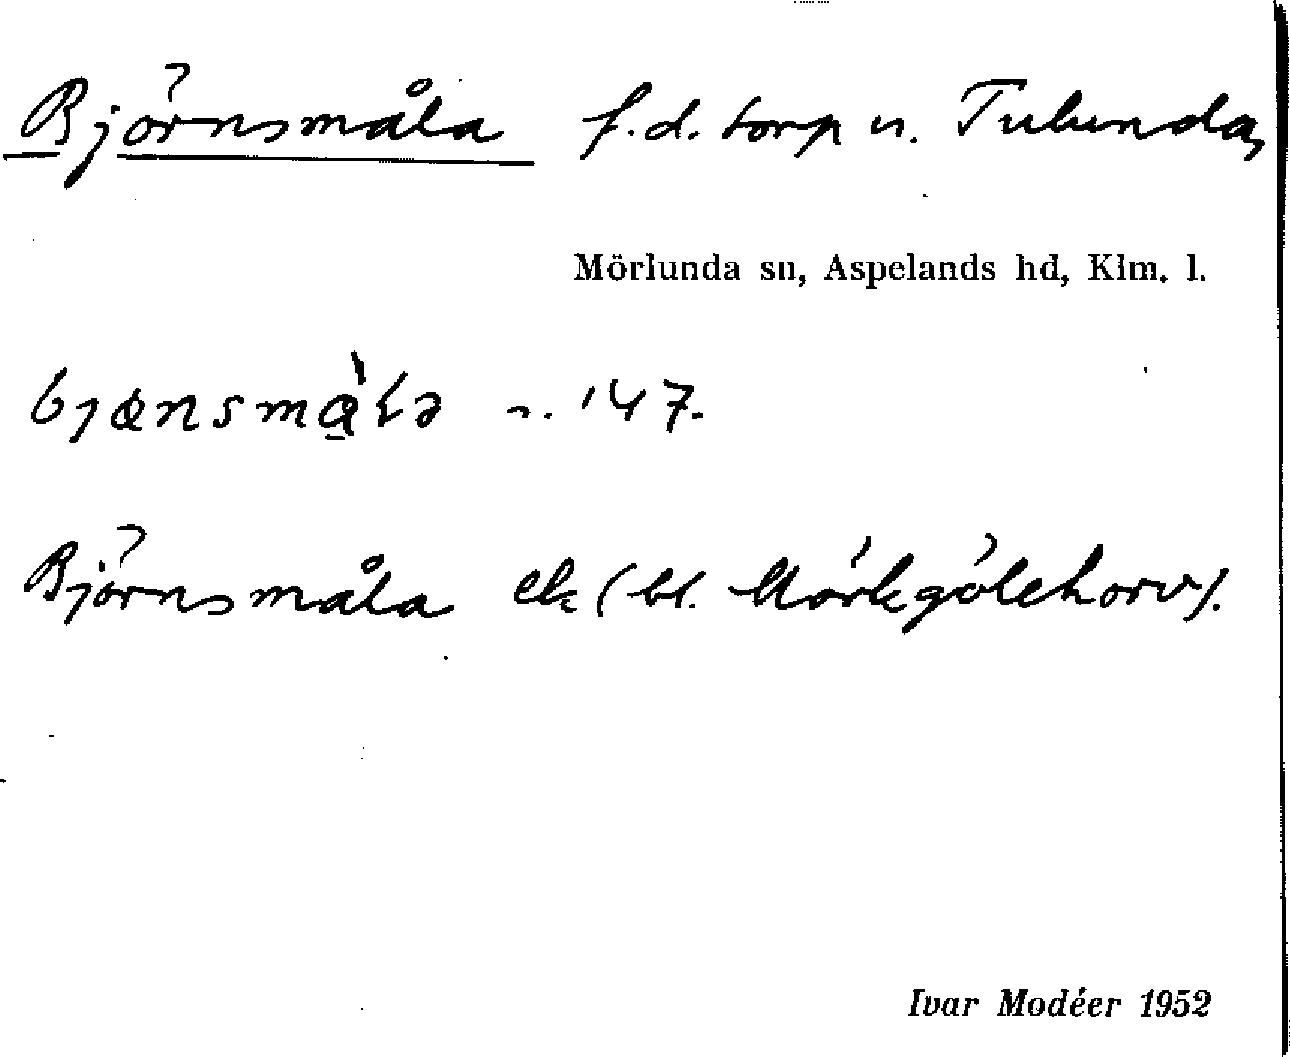 Björnsmåla f.d. torp u. Tulunda,
Mörlunda sn, Aspelands hd, Klm. l.
'47.
Björnsmåla ek (bl. Mörkgölehorv).
Ivar Modéer 1952